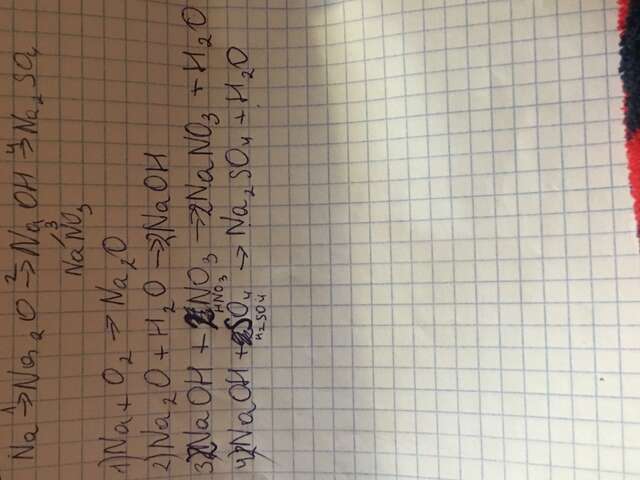 Na 1→ Na2O 2→ NaOH 4→ Na2SO4
3
NaNO3
1) Na + O2 → Na2O
2) Na2O + H2O → 2NaOH
3) 2NaOH + NO3 → 2NaNO3 + H2O
HNO3
4) 2NaOH + SO4 → Na2SO4 + H2O
H2SO4